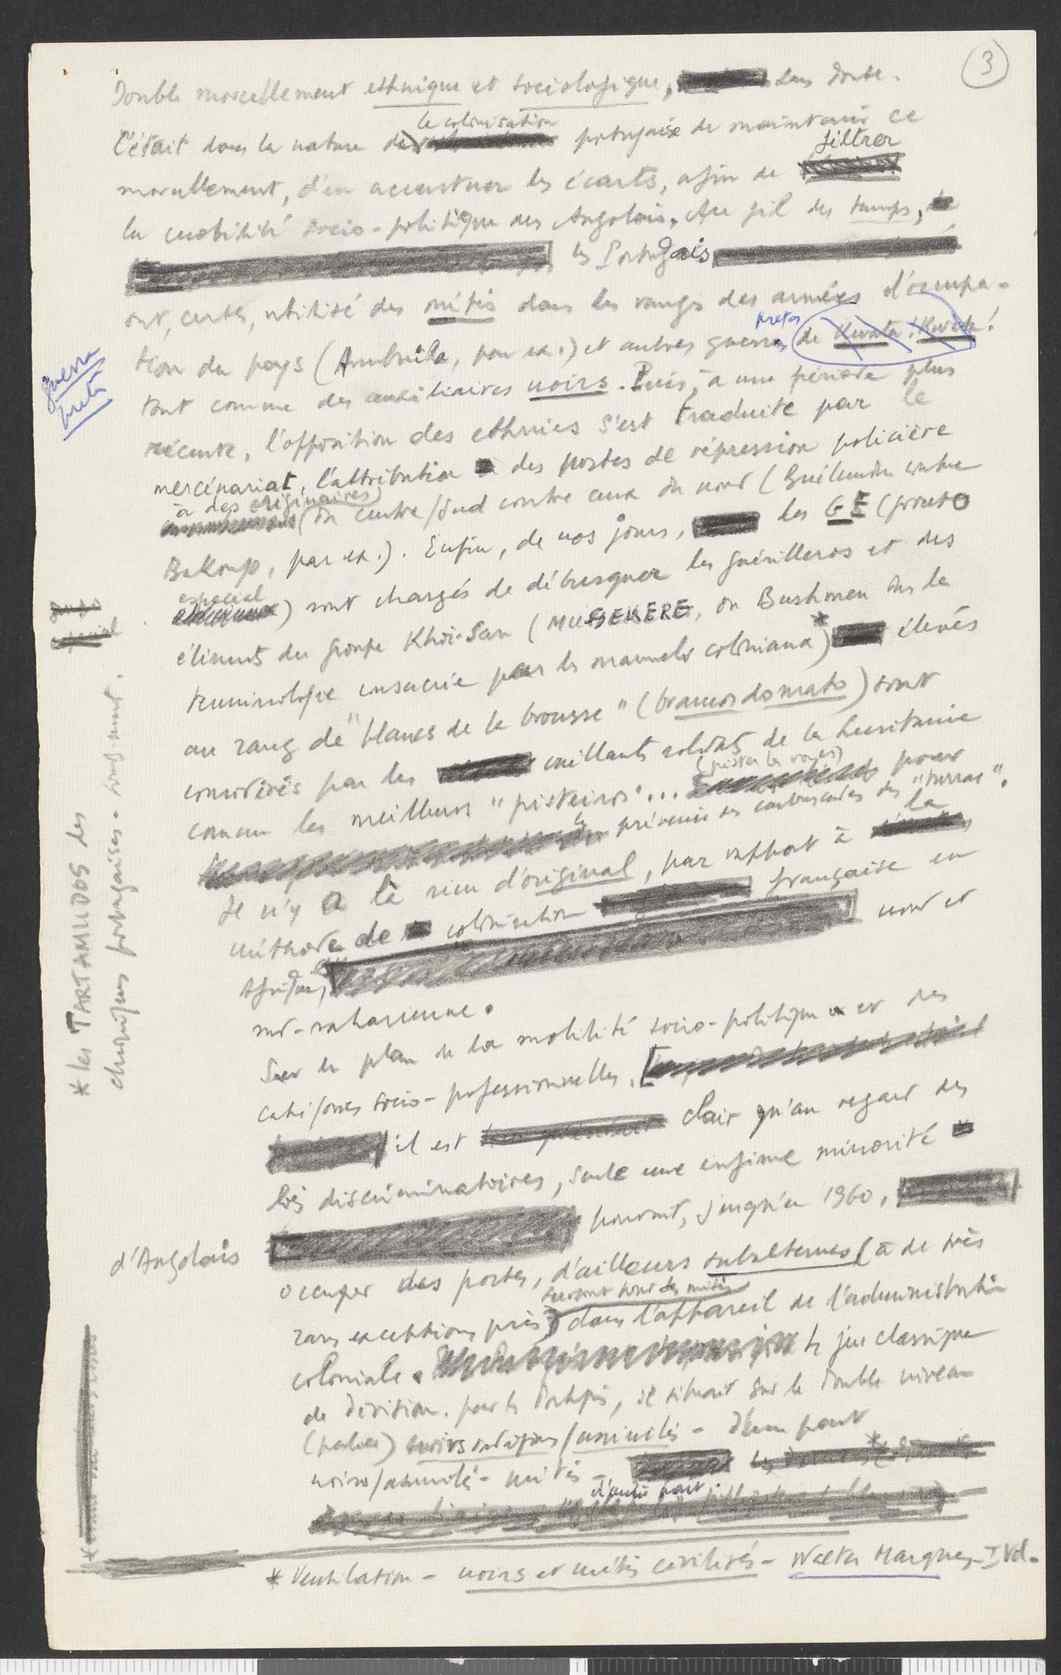 3
Double morcellement ethnique et sociologique, sans doute.
C'était dans la nature de la colonisation portugaise de maintenir ce
morcellement, d'en accentuer les écarts, afin de filtrer
la mobilité socio-politique des Angolais. Au fil des temps,
les Portugais
ont, certes, utilisé des métis dans les rangs des armées d'occupa-
tion du pays (Ambuíla, par ex.) et autres guerras pretas de Kwata! Kwata!
guerra preta
tout comme des auxiliaires noirs. Puis, à une période plus
récente, l'opposition des ethnies s'est traduite par le
mercenariat, l'attribution des postes de répression policière
à des originaires (du centre/sud contre ceux du nord (Bailundu contre
Bakongo, par ex.). Enfin, de nos jours, les GE (grupo
especial) sont chargés de débusquer les guérilleros et des
éléments du groupe Khoi-San (MUSEKERE, ou Bushmen dans la
terminologie consacrée par les manuels coloniaux*) élevés
au rang de "blancs de la brousse" (brancos do mato) sont
considérés par les vaillants soldats de la Lusitanie
comme les meilleurs "pisteiros"... (pister les voyes) pour
prévenir les embuscades des "turras".
Il n'y a là rien d'original, par rapport à la
méthode de colonisation française en
Afrique, nord et
sud-saharienne.
Sur le plan de la mobilité socio-politique et des
catégories socio-professionnelles, il est clair qu'au regard des
lois discriminatoires, seule une infime minorité
d'Angolais pouvant, jusqu'en 1960,
occuper des postes, d'ailleurs subalternes (à de très
rares exceptions près) suivant tous des métis dans l'appareil de l'administration
coloniale. le jeu classique
de division, par le Portugais, se situait sur le double niveau
noirs indigènes/assimilés - d'une part
noirs/assimilés - métis - d'autre part.
* les TARTAMUDOS des
chroniques portugaises.
* Ventilation - noirs et métis civilisés - Walter Marques - I Vol.